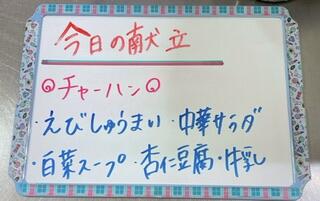 今日の献立
チャーハン
・えびしゅうまい・中華サラダ
・白菜スープ・杏仁豆腐・牛乳